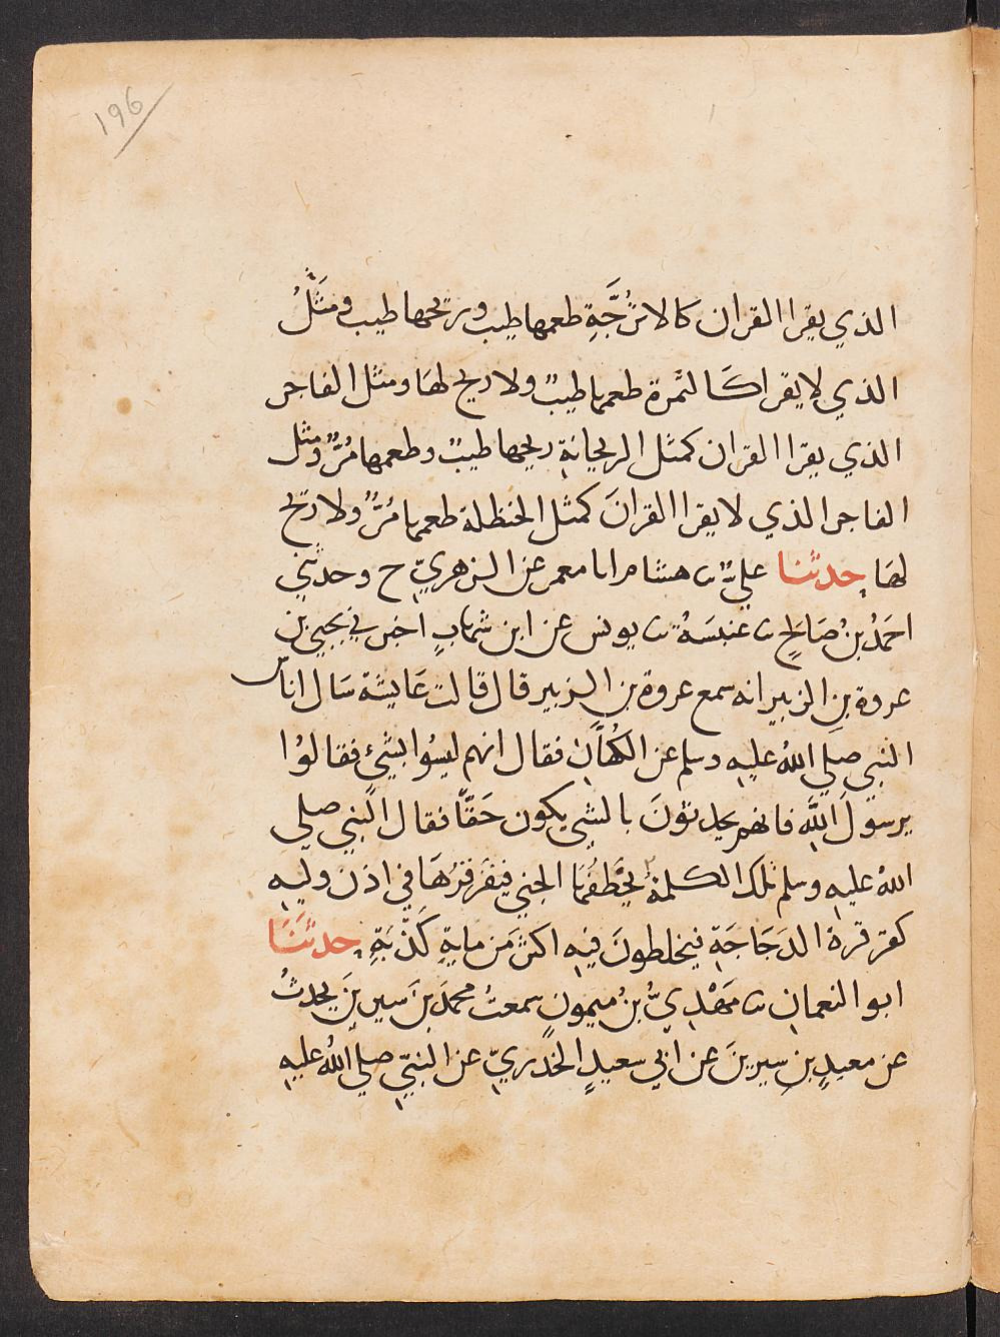 196
الذي يقرا القران كالاترُجَّةِ طعمها طيب وريحها طيب ومَثَلُ
الذي لا يقرا كَالتمرة طعمها طيبٌ ولا ريح لهَا ومثل الفاجر
الذي يقرا القران كمثل الريحانةِ ريحها طيبٌ وطعمها مُرٌّ ومثل
الفاجر الذي لا يقرا القرانَ كمثل الحنظلة طعمها مُرٌّ ولا ريح
لهَا حدثنا عليٌّ ثنا هشام انا معمر عن الزهريِّ ح وحدثني
احمَدُ بنُ صَالحٍ ثنا عنبسَةُ ثنا يونس عن ابن شهابٍ اخبرني يحيى بن
عروة بنِ الزبير انه سمع عروة بن الزبير قال قالت عَايشة سَال اناس
النبي صلي اللهُ عليهِ وسلم عن الكُهَّانِ فقال انهم ليسُوا بشيءٍ فقالوُا
يرسوَلَ اللَّهِ فانهم يحدثونَ بالشي يكون حَقّاً فقال النبي صلي
اللهُ عليهِ وسلم تلك الكلمةُ يخَطفُهَا الجني فيقَرقِرُهَا في اذن وليهِ
كقرقرة الدَجَاجَةِ فيخلطونَ فيهِ اكثَر مَن مايةِ كَذْبَةٍ حدثَنَا
ابو النعمانِ ثنا مَهْدِيُّ بنُ ميمونٍ سمعتُ محمدَ بنَ سيرينَ يحدثُ
عن معبدِ بنِ سِيرينَ عن ابي سعيدٍ الخُدريِّ عن النبيِّ صلي اللهُ عليهِ